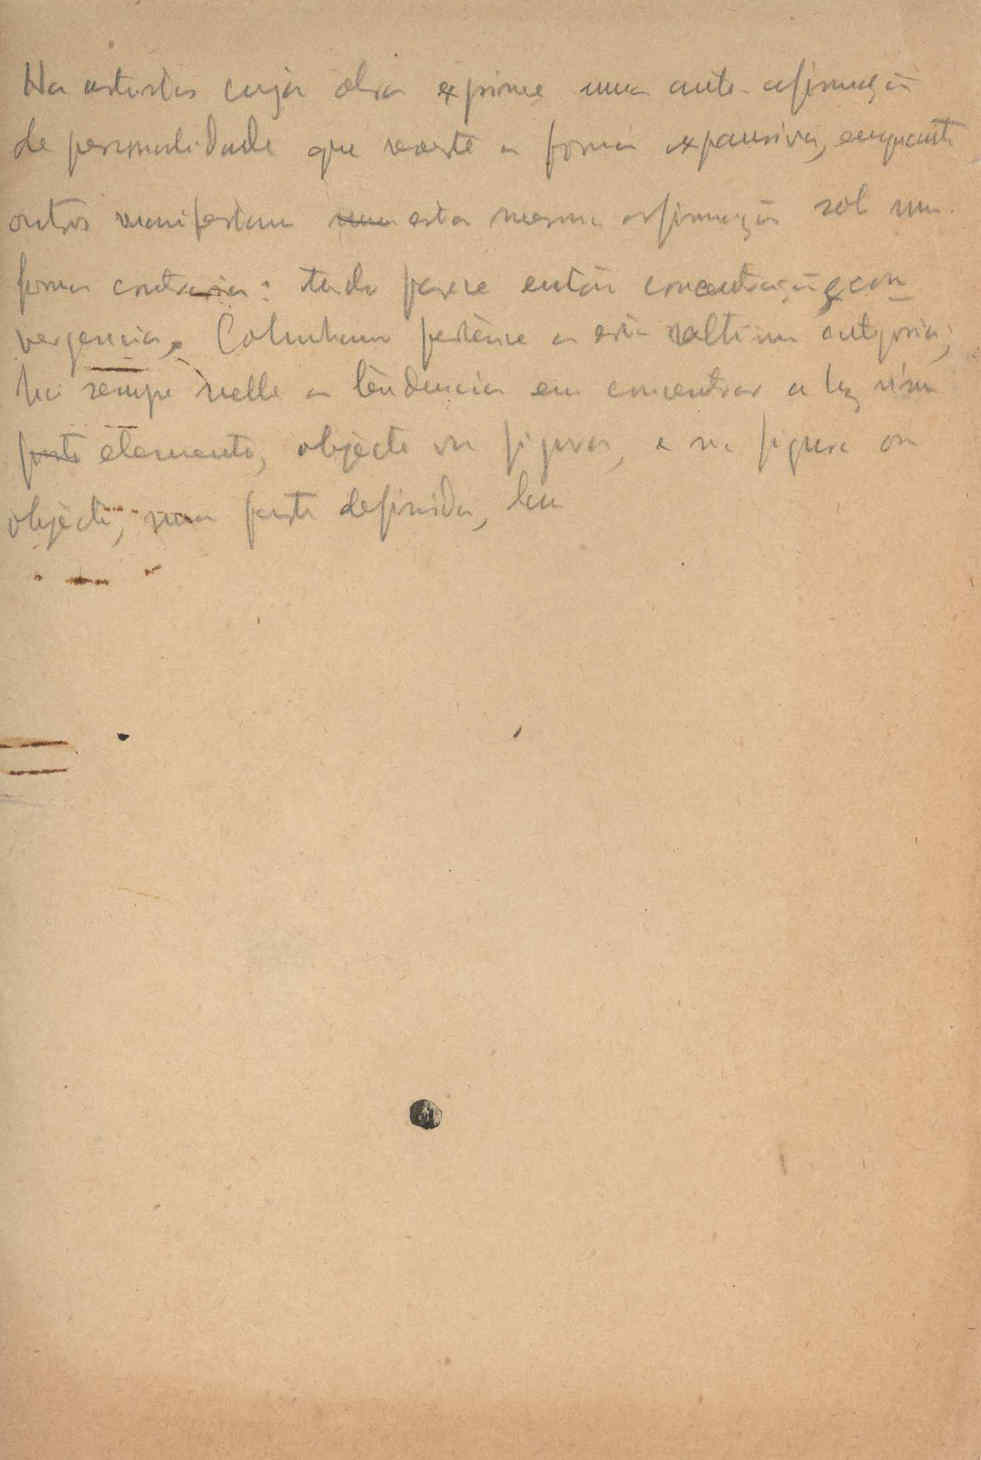 Ha artistas cuja obra exprime uma auto-afirmação
de personalidade que reveste a forma expansiva, enquanto
outros manifestam uma esta mesma afirmação sob uma
forma contraria: tudo parece então concentração e con
vergencia. Columbano pertence a esta ultima categoria;
ha sempre nelle a tendencia em concentrar a luz n'um
ponto elemento, objecto ou figura, e na figura ou
objecto, n'uma parte definida,